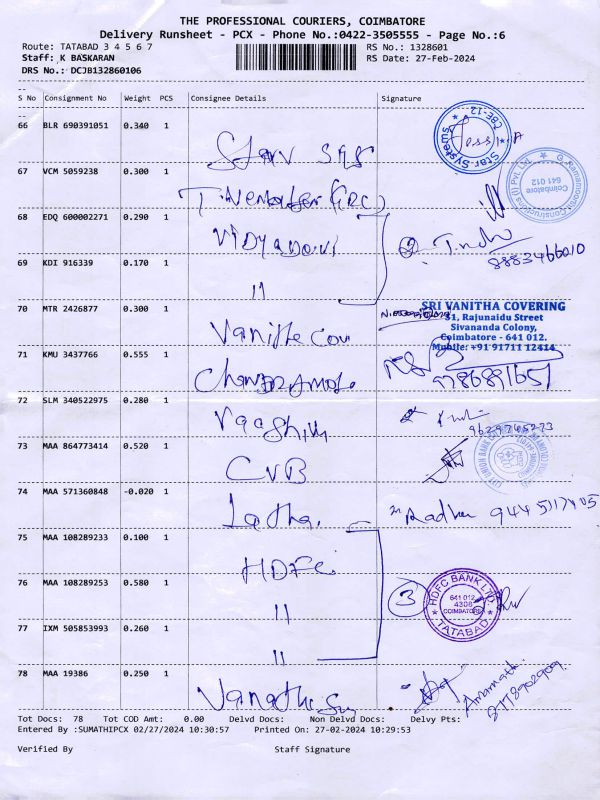 THE PROFESSIONAL COURIERS, COIMBATORE
Delivery Runsheet - PCX - Phone No.:0422-3505555 - Page No.:6
Route: TATABAD 3 4 5 6 7 RS No.: 1328601
Staff: K BASKARAN RS Date: 27-Feb-2024
DRS No.: DCJB132860106
S No Consignment No Weight PCS Consignee Details Signature
66 BLR 690391051 0.340 1
Star System CBE-12
67 VCM 5059238 0.300 1
G. Ramamoorthy Constructions (I) Pvt. Ltd. Coimbatore 641 012
68 EDQ 600002271 0.290 1 Vidya Devi
2
8883466010
69 KDI 916339 0.170 1 "
70 MTR 2426877 0.300 1 Vanitha Cov
SRI VANITHA COVERING
31, Rajunaidu Street
Sivananda Colony,
Coimbatore - 641 012.
Mobile: +91 91711 12414
71 KMU 3437766 0.555 1
72 SLM 340522975 0.280 1
9629745273
73 MAA 864773414 0.520 1 CVB
74 MAA 571360848 -0.020 1 Latha
Radha
75 MAA 108289233 0.100 1 HDFC
76 MAA 108289253 0.580 1 "
3
HDFC BANK LTD. 641 012 4306 COIMBATORE TATABAD
77 IXM 505853993 0.260 1 "
78 MAA 19386 0.250 1
Amarnath
Tot Docs: 78 Tot COD Amt: 0.00 Delvd Docs: Non Delvd Docs: Delvy Pts:
Entered By :SUMATHIPCX 02/27/2024 10:30:57 Printed On: 27-02-2024 10:29:53
Verified By Staff Signature